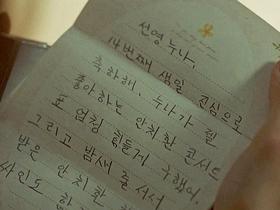 선영누나,
14번째 생일 진심으로
축하해. 누나가 젤
좋아하는 안치환 콘서트
표 엄청 힘들게 구했어.
그리고 밤새 줄 서서
받은 안치환
싸인도